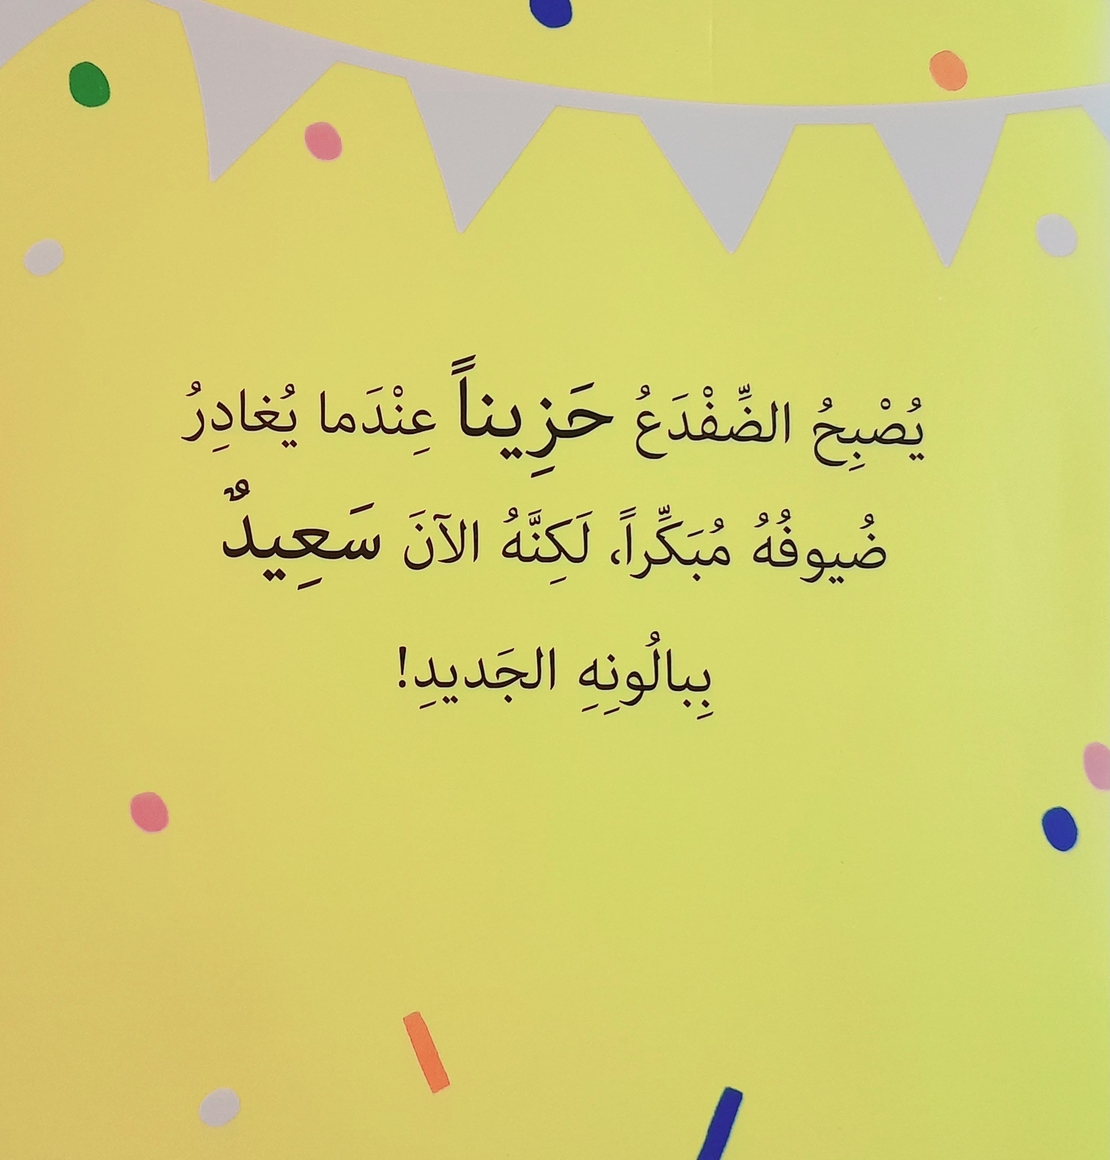 يُصْبِحُ الضِّفْدَعُ حَزِيناً عِنْدَما يُغادِرُ
ضُيوفُهُ مُبَكِّراً، لَكِنَّهُ الآنَ سَعِيدٌ
بِبالُونِهِ الجَديدِ!